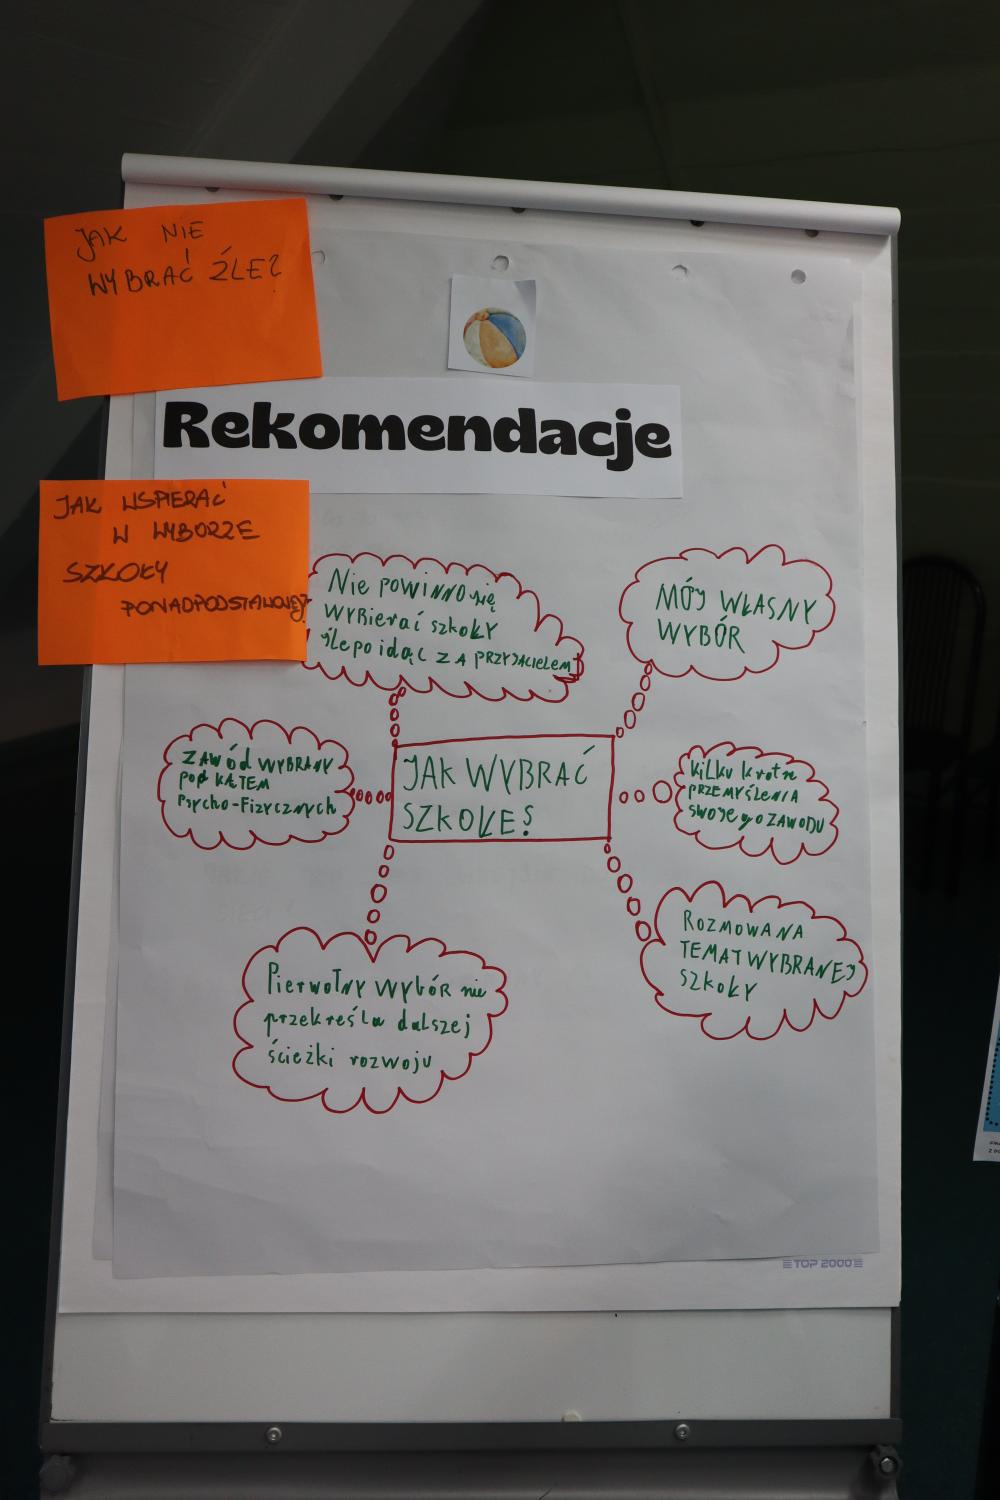 JAK NIE
WYBRAĆ ŹLE?
Rekomendacje
JAK WSPIERAĆ
W WYBORZE
SZKOŁY
PONADPODSTAWOWEJ
Nie powinno się
wybierać szkoły
ślepo idąc ZA PRZYJACIELEM
MÓJ WŁASNY
WYBÓR
ZAWÓD WYBRANY
POD KĄTEM
Psycho-Fizycznych
JAK WYBRAĆ
SZKOŁĘ?
Kilku krotne
PRZEMYŚLENIA
SWOJEGO ZAWODU
ROZMOWA NA
TEMAT WYBRANEJ
SZKOŁY
Pierwotny wybór nie
przekreśla dalszej
ścieżki rozwoju
TOP 2000